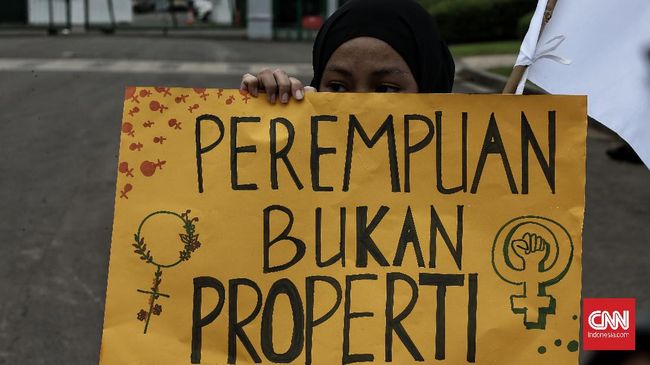 PEREMPUAN
BUKAN
PROPERTI
CNN
Indonesia.com